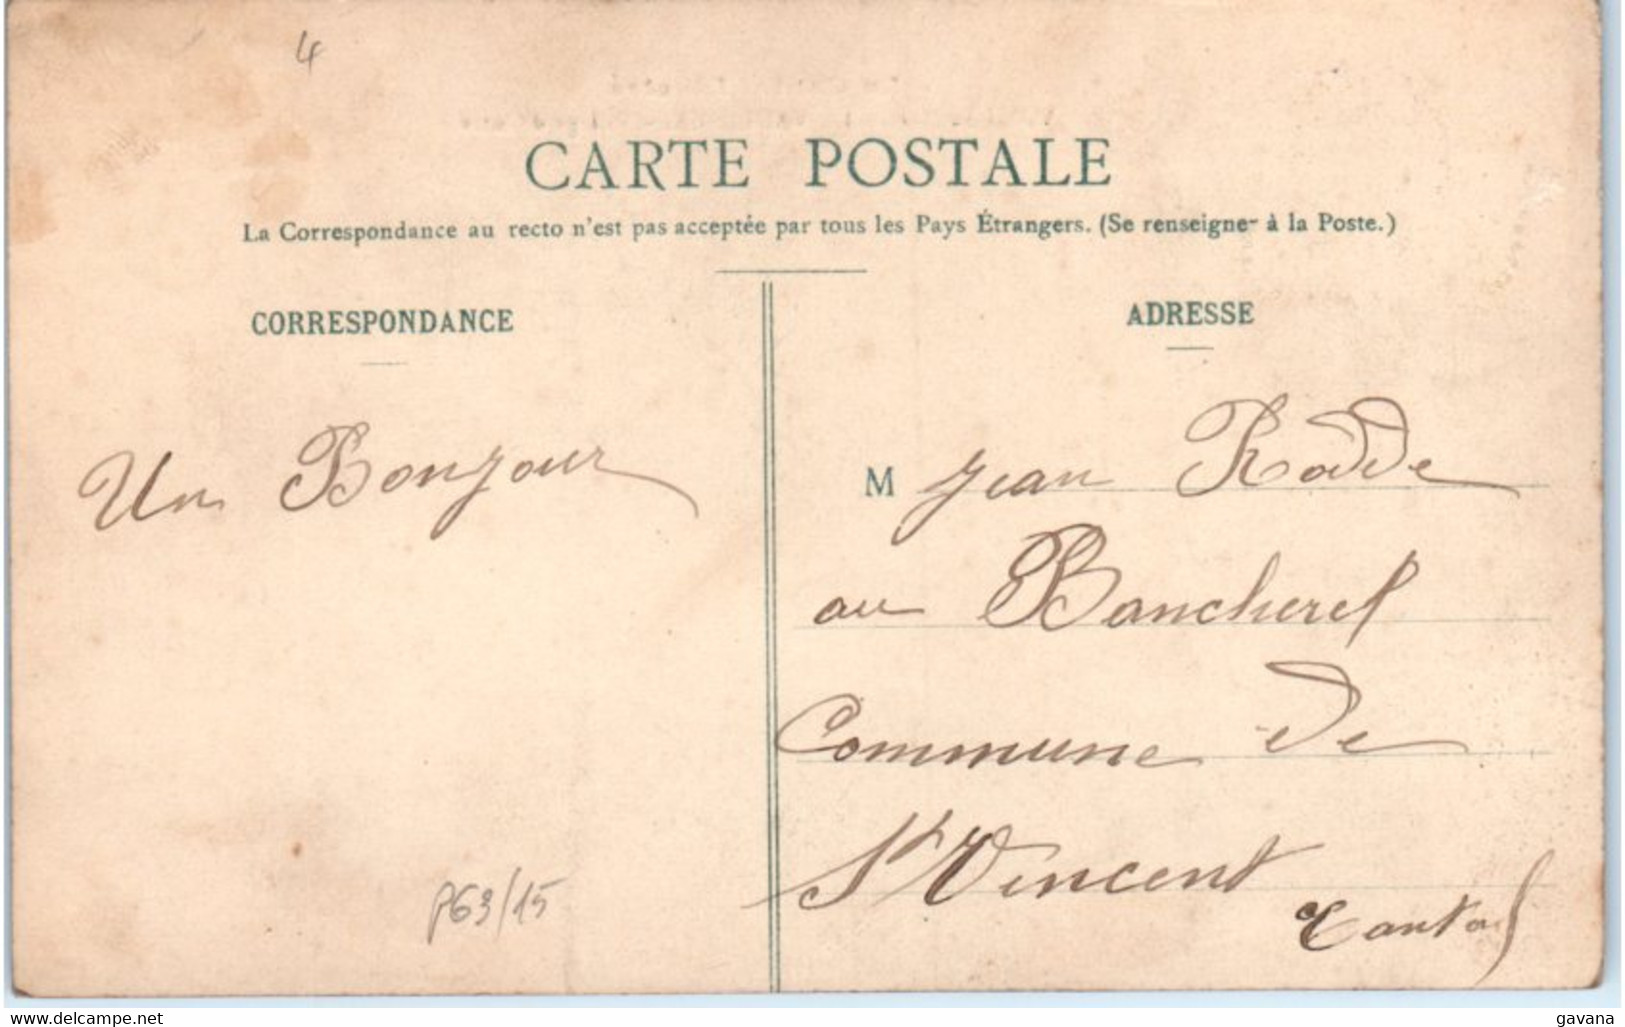 4
CARTE POSTALE
La Correspondance au recto n'est pas acceptée par tous les Pays Étrangers. (Se renseigner à la Poste.)
CORRESPONDANCE
Un Bonjour
P63/15
ADRESSE
M Jean Rodde
au Bancherel
Commune de
St Vincent
Cantal
www.delcampe.net
gavana